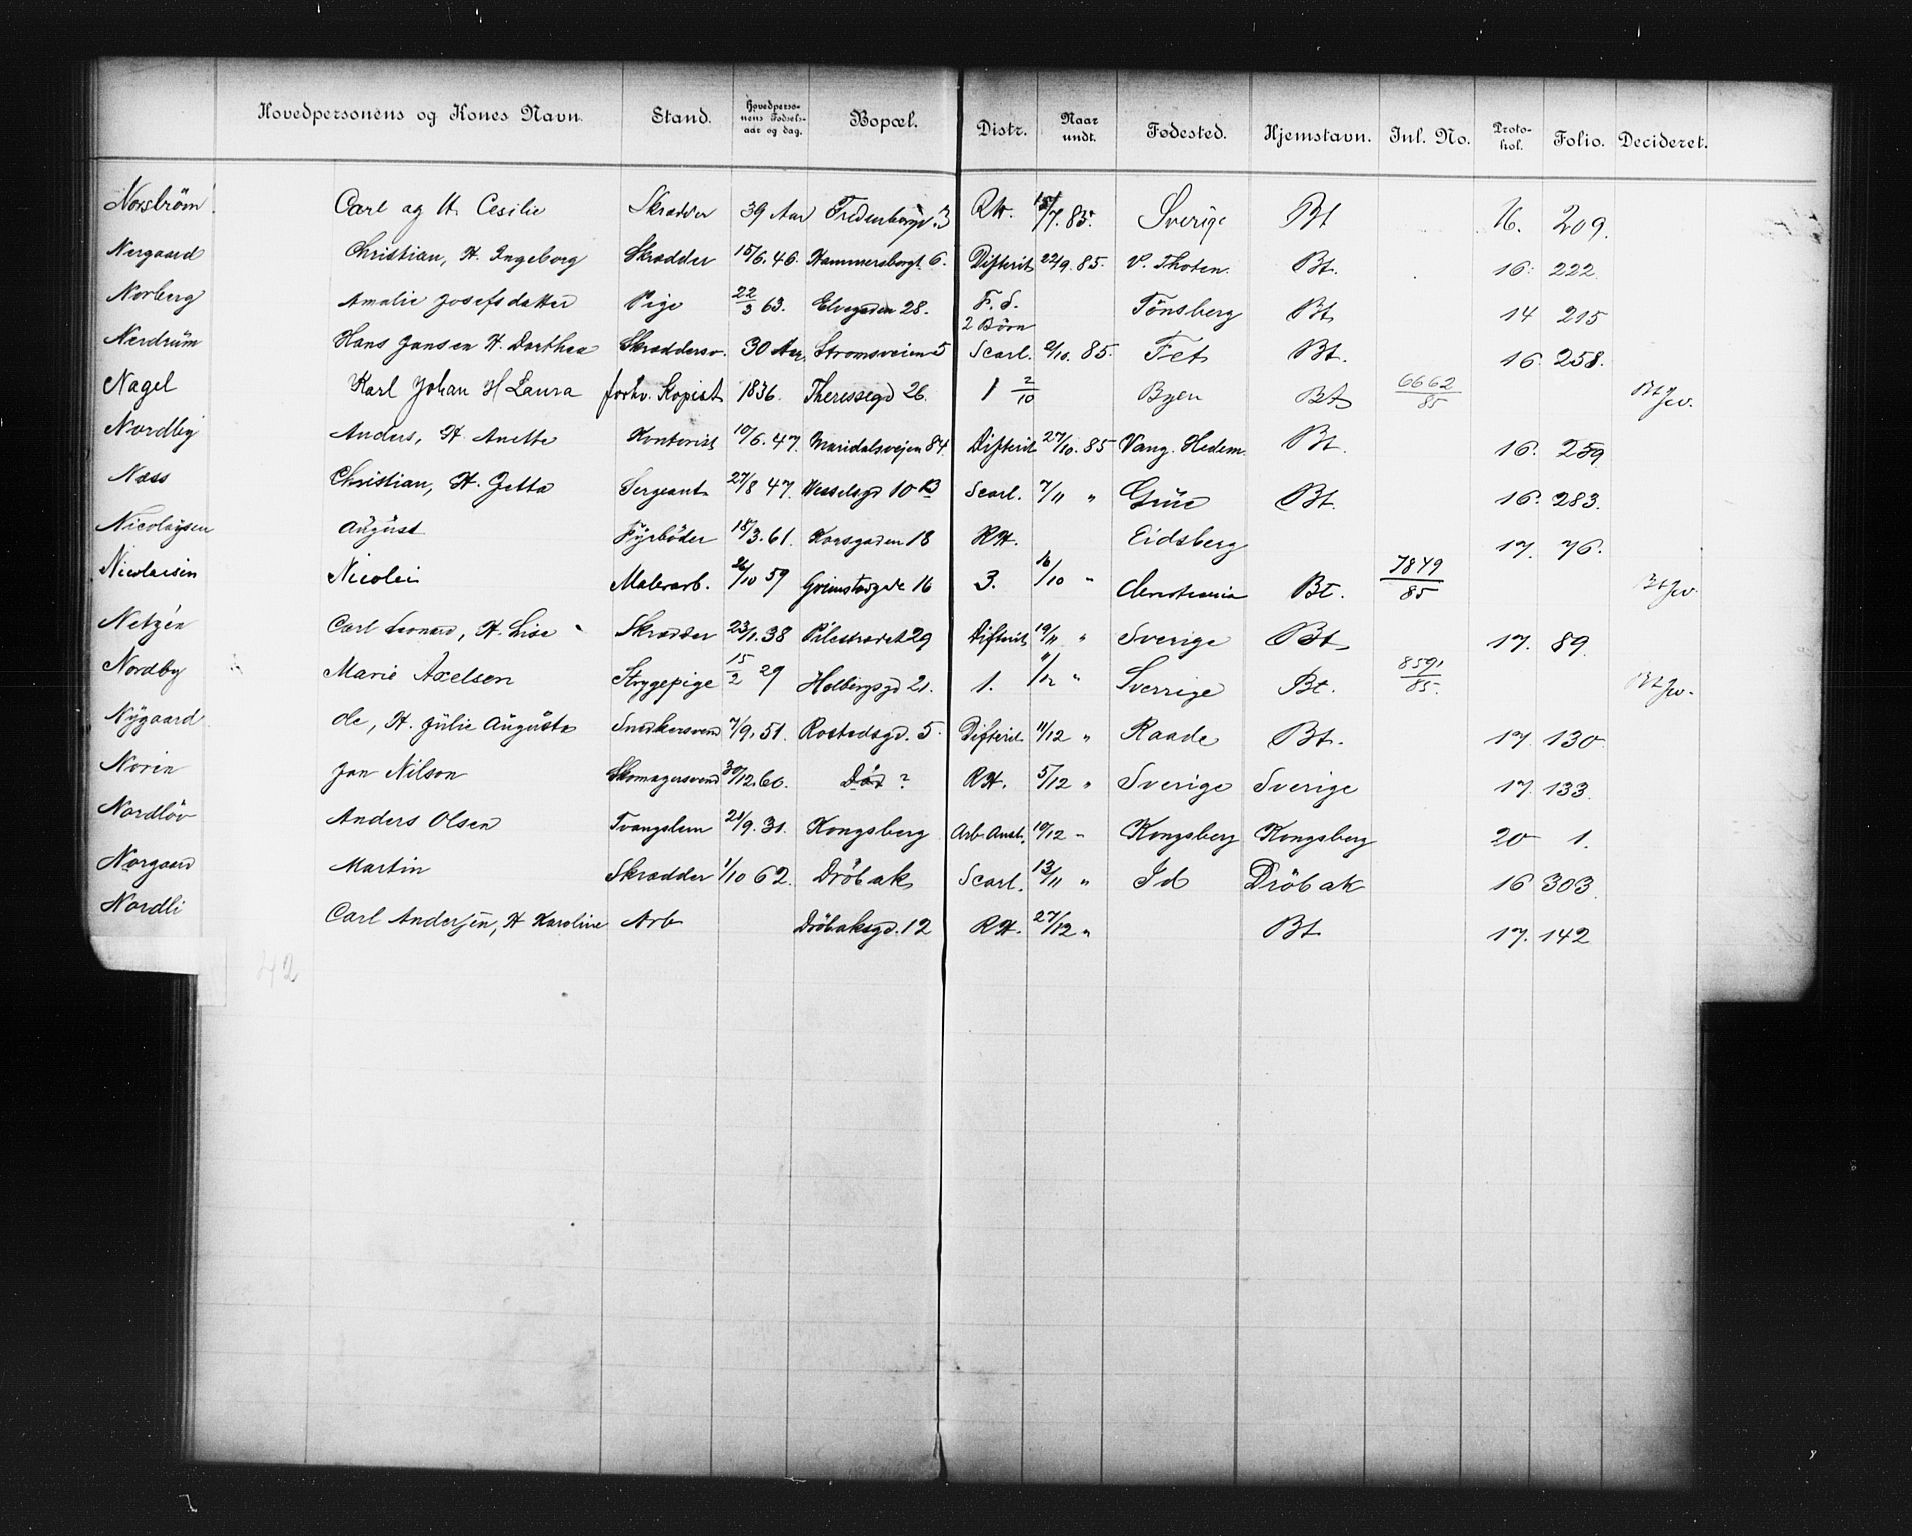 Hovedpersonens og Kones Navn. Stand. Hovedperso-nens Fødsels-aar og dag. Bopæl. Distr. Naar undt. Fødested. Hjemstavn. Inl. No. Proto-kol. Folio. Decideret.
Norström Carl og H. Cesilie Skrædder 39 Aar 3 RH. /7. 85. Sverige Bt 16. 209.
Nergaard Christian, H. Ingeborg Skrædder 15/6. 46. Hammersborgt. 6. Difterit 22/9. 85. V. Thoten. Bt. 16. 222
Norberg Amalie Josefsdatter Pige 22/3 63. Elvegaden 28. F. S. Tönsberg Bt 14 215
Nerdrüm Hans Jansen H. Dorthea Skræddersv. 30 Aar, Strømsveien 5 2 Børn Scarl. /10. 85. Fet Bt. 16. 258.
Nagel Karl Johan H Laura forhv. Kopist 1836. Theressegd 26. 1 2/10 Byen Bt 6662/85 Bt
Nordby Anders, H. Anette Kontorist 10/6. 47. Maridalsveien 84. Difterit 27/10. 85 Vang. Hedem. Bt. 16. 259
Næss Christian, H. Jetta Sergeant 27/8 47. Wesselsgd 10 B Scarl. 7/11 " Grüe Bt. 16. 283.
Nicolaysen Aügüst Fyrbøder 18/3. 61. Korsgaden 18 RH. Eidsberg 17. 76.
Nicolaisen Nicolai Malerarb. 26/10 59 Grimstadgade 16 3. 16/10 " Christiania Bt. 7849/85 Bt
Netzén Carl Leonard, H. Lise Skrædder 23/1. 38 Pilestrædet 29 Difterit 19/11 " Sverige Bt 17. 89.
Nordby Marie Axelsen Strygepige 15/2 29 Holbergsgd 21. 1. 11/12 " Sverrige Bt. 8591/85. Bt
Nygaard Ole, H. Jülie Aügüsta Snedkersvend 7/9. 51. Rostedsgd. 5. Difterit 11/12 " Raade Bt. 17. 130.
Norin Jan Nilson Skomagersvend 30/12. 60. Död ? RH. 5/12 " Sverige Sverige 17. 133.
Nordløv Anders Olsen Tvangslem 21/9. 31. Kongsberg Arb. Anst. 10/12 " Kongsberg Kongsberg 20 1.
Norgaard Martin Skrædder 1/10 62. Dröbak Scarl. 13/11 " Id Dröbak 16 303.
Nordli Carl Andersen, H Karoline Arb Dröbaksgd. 12 RH. 27/12 " Bt 17. 142
42